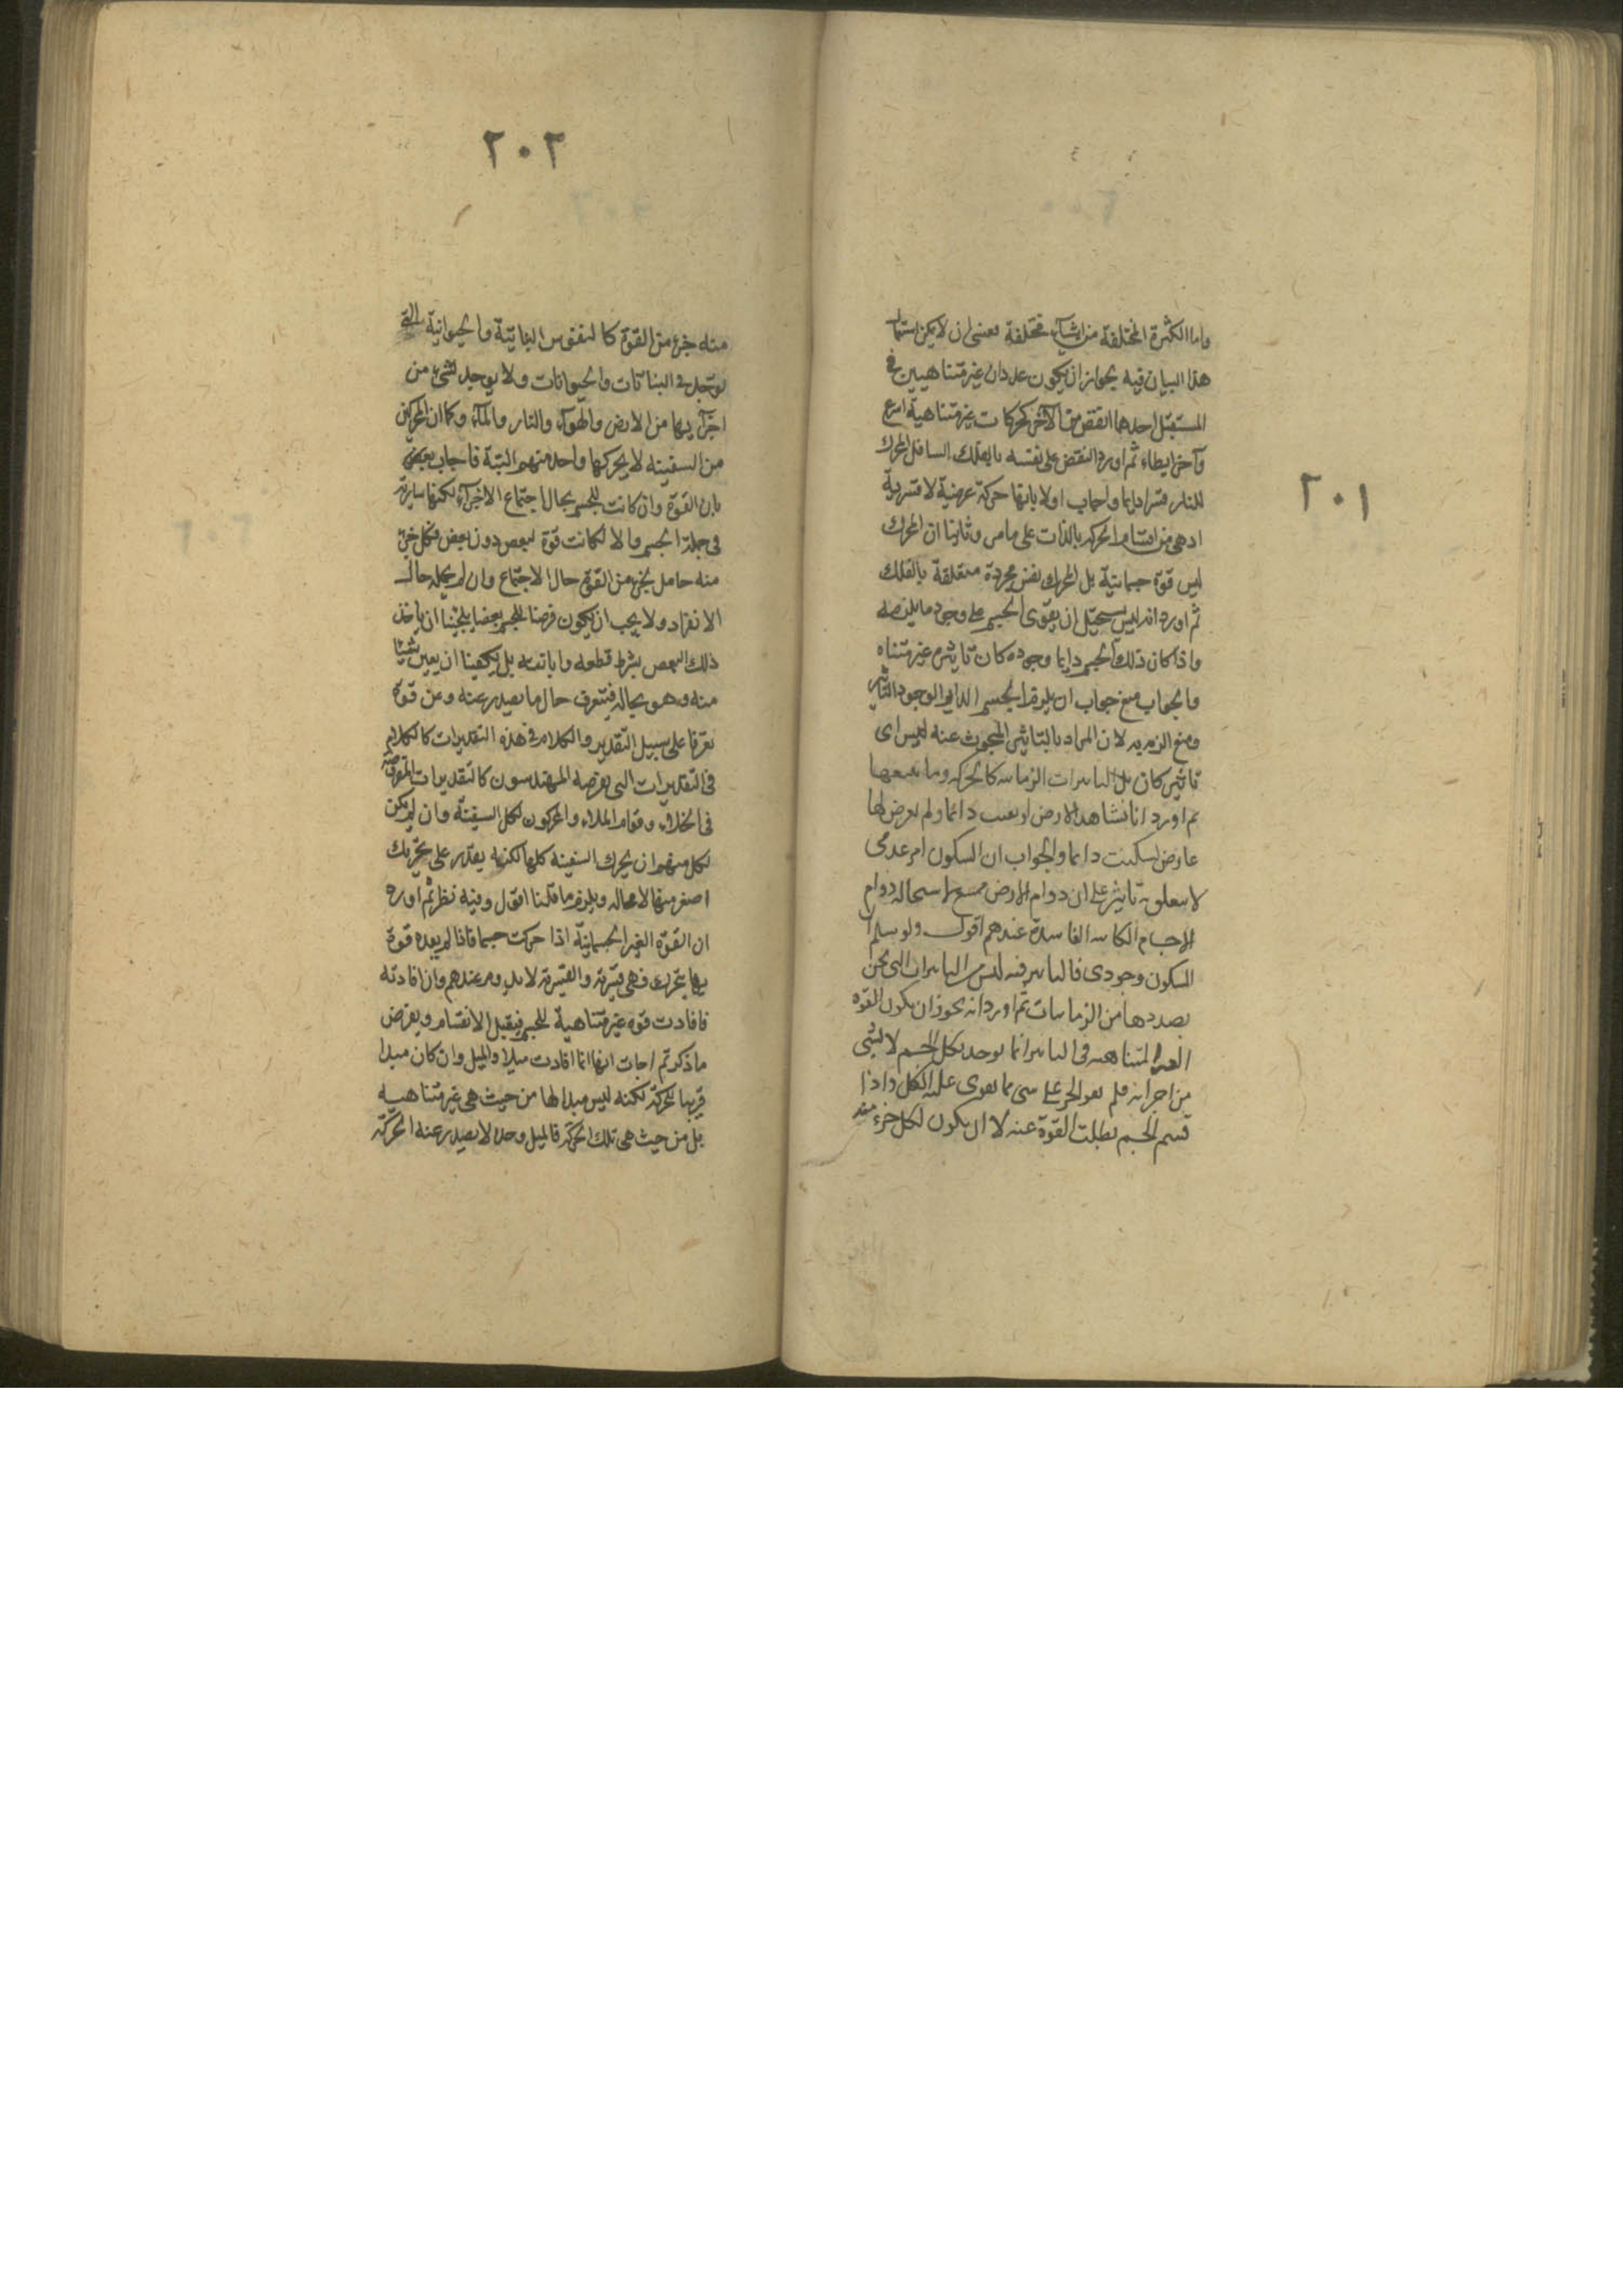 ٢٠١
واما الكثرة المختلفة من اشياء مختلفة فعسى ان لا يمكن استعمال
هذا البيان فيه بجواز ان يكون عددان غير متناهيين في
المستقبل احدهما انقص من الآخر كحركات غير متناهية اسرع
وآخر ابطاء ثم اورد النقض على نفسه بالفلك السافل المحرك
للنار قسرا دايما واجاب اولا بانها حركة عرضية لا قسرية
اذ هي من اقسام الحركة بالذات على ما مر وثانيا ان المحرك
ليس قوة جسمانية بل المحرك نفس مجردة متعلقة بالفلك
ثم اورد انه ليس يستحيل ان يقوى الجسم على وجود ما يلزمه
واذا كان ذلك الجسم دايما وجوده كان تاثيره غير متناه
والجواب منع جواب ان يلزم الجسم الدايم الوجود التاثير
ومنع الزمه لان المراد بالتاثير المبحوث عنه ليس اى
تاثير كان بل التاثيرات الزمانيه كالحركه وما يتبعها
ثم اورد انا نشاهد الارض لو بقيت دائما ولم يعرض لها
عارض لسكنت دايما والجواب ان السكون امر عدمى
لا يتعلق به تاثير على ان دوام الارض ممتنع لاستحالة دوام
الاجسام الكاينه الفاسدة عندهم اقول ولو سلم ان
السكون وجودى فالتاثير فيه ليس من التاثيرات التى نحن
بصددها من الزمانيات ثم اورد انه يجوز ان يكون القوه
الغير المتناهيه فى التاثير انما يوجد لكل الجسم لا لشئ
من اجزائه فلم يقو الجزء على شئ مما يقوى عليه الكل واذا
قسم الجسم بطلت القوة عنه لا ان يكون لكل جزء منه
٢٠٢
منه جزء من القوة كالنفوس النباتية والحيوانية التى
توجد فى النباتات والحيوانات ولا يوجد لشئ من
اجزائها من الارض والهوآء والنار والمآء وكما ان المحركين
من السفينه لا يحركها واحد منهم البتة فاجاب بعض
بان القوة وان كانت للجسم بحال اجتماع الاجزآء لكنها سارية
فى جملة الجسم والا لكانت قوة لبعض دون بعض فكل جزء
منه حامل لجزء من القوة حال الاجتماع وان لم يحمله حال
الانفراد ولا يجب ان يكون فرضنا للجسم بعضا يلجئنا ان ياخذ
ذلك البعض بشرط قطعه وابانته بل يكفينا ان يعين شيئا
منه وهو بحاله فيتعرف حال ما يصدر عنه وعن قوة
تعرفا على سبيل التقدير والكلام فى هذه التقديرات كالكلام
فى التقديرات التى يفرضه المهندسون كالتقديرات المفروضة
فى الخلاء وقوام الملاء والمحركون لكل السفينة وان لم يكن
لكل منهم ان يحرك السفينه كلها لكنه يقدر على تحريك
اصغر منها لا محاله ويلزم ما قلنا اقول وفيه نظر ثم اورد
ان القوة الغير الجسمانية اذا حركت جسما فاذا لم يفده قوة
بها يتحرك فهى قسرية والقسرية لا يدوم عندهم وان افادته
فافادت قوه غير متناهية للجسم فيقبل الانقسام ويعرض
ما ذكرتم اجاب انها انما افادت ميلا والميل وان كان مبدا
قريبا للحركة لكنه ليس مبدا لها من حيث هى غير متناهيه
بل من حيث هى تلك الحركة فالميل وحده لا يصدر عنه الحركة